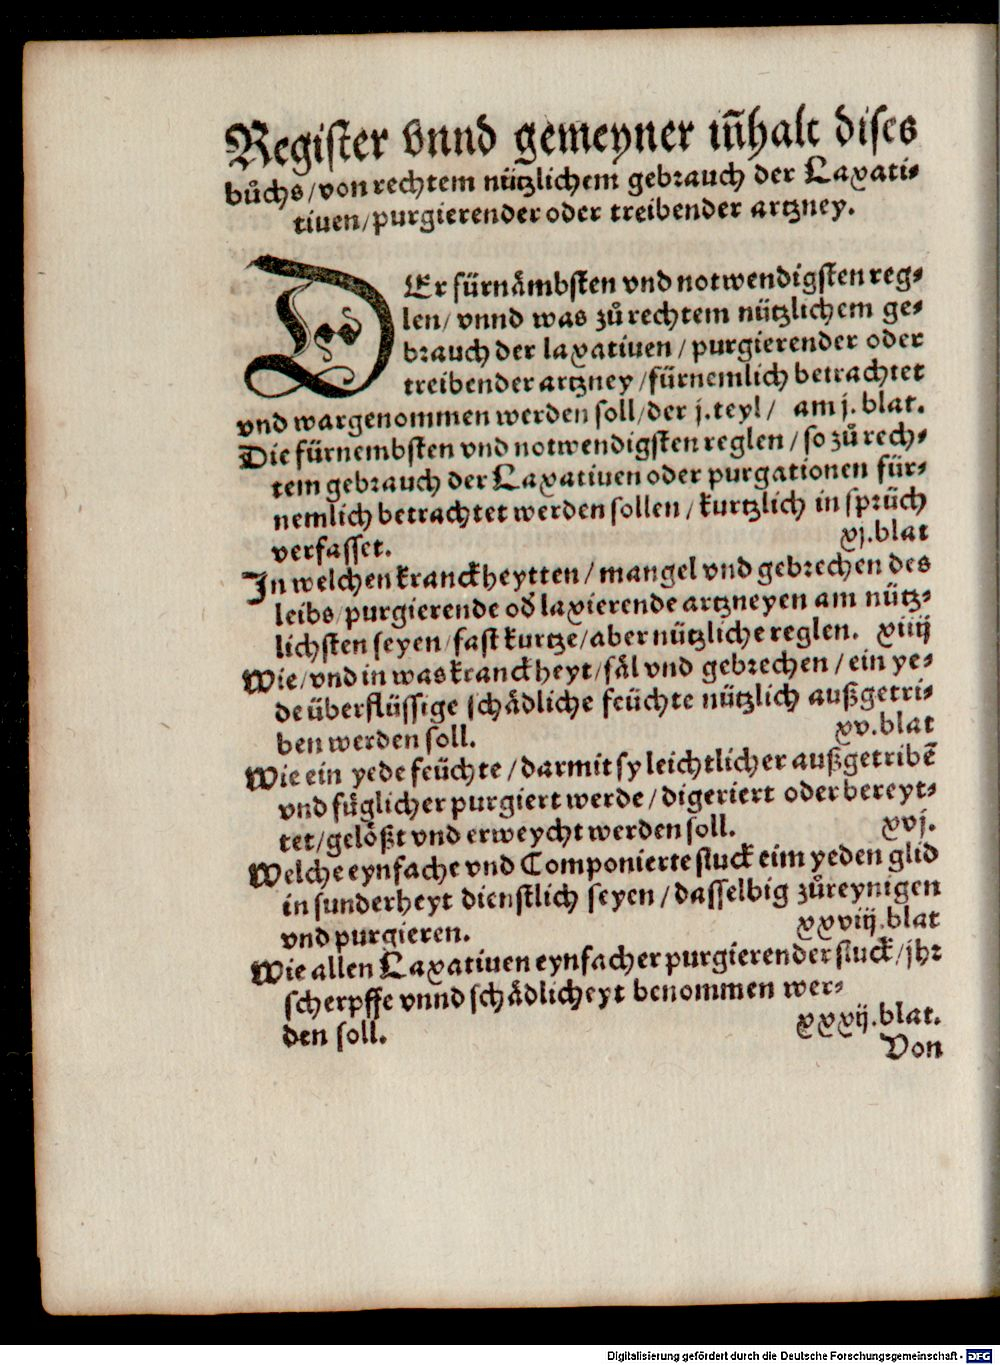 Register vnnd gemeyner iñhalt dises
bůchs/von rechtem nützlichem gebrauch der Laxati⸗
tiuen/purgierender oder treibender artzney.
DEr fürnåmbsten vnd notwendigsten reg⸗
len/vnnd was zů rechtem nützlichem ge⸗
brauch der laxatiuen/purgierender oder
treibender artzney/fürnemlich betrachtet
vnd wargenommen werden soll/der j.teyl/ am j. blat.
Die fürnembsten vnd notwendigsten reglen/so zů rech⸗
tem gebrauch der Laxatiuen oder purgationen für⸗
nemlich betrachtet werden sollen/kurtzlich in sprüch
verfasset. xj.blat
In welchen kranckheytten/mangel vnd gebrechen des
leibs/purgierende od̓ laxierende artzneyen am nütz⸗
lichsten seyen/fast kurtze/aber nützliche reglen. xiiij
Wie/vnd in was kranckheyt/fål vnd gebrechen/ein ye⸗
de überflüssige schådliche feüchte nützlich außgetri⸗
ben werden soll. xv.blat
Wie ein yede feüchte/darmit sy leichtlicher außgetribē
vnd füglicher purgiert werde/digeriert oder bereyt⸗
tet/gelößt vnd erweycht werden soll. xvj.
Welche eynfache vnd Componierte stuck eim yeden glid
in sunderheyt dienstlich seyen/dasselbig zůreynigen
vnd purgieren. xxviij.blat
Wie allen Laxatiuen eynfacher purgierender stuck/jhr
scherpffe vnnd schådlicheyt benommen wer⸗
den soll. xxxij.blat.
Von
Digitalisierung gefördert durch die Deutsche Forschungsgemeinschaft - DFG